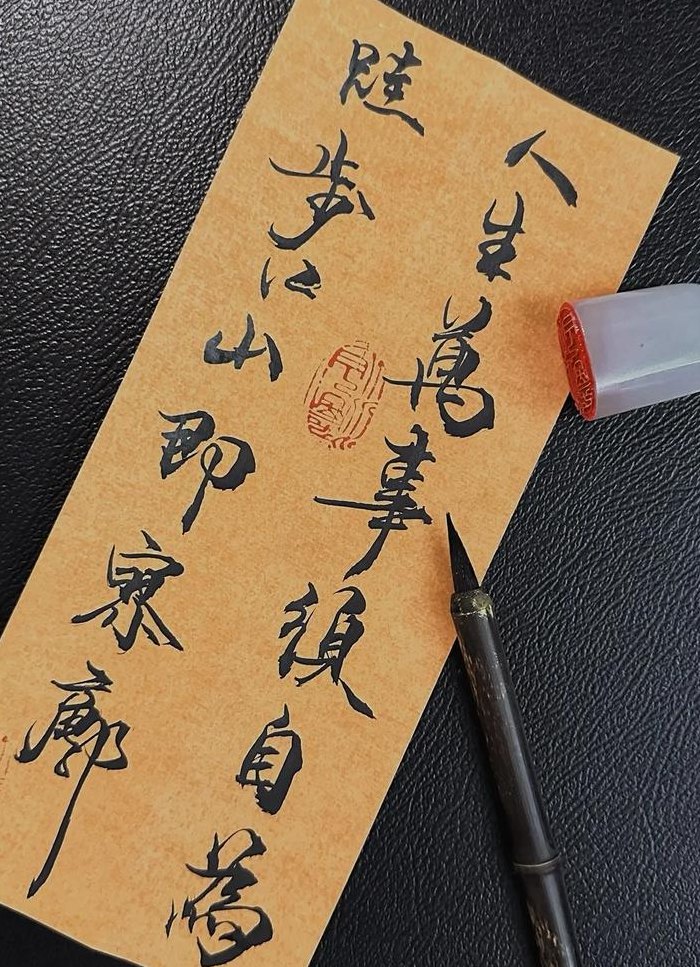 人生萬事須自為
跬步江山即寥廓